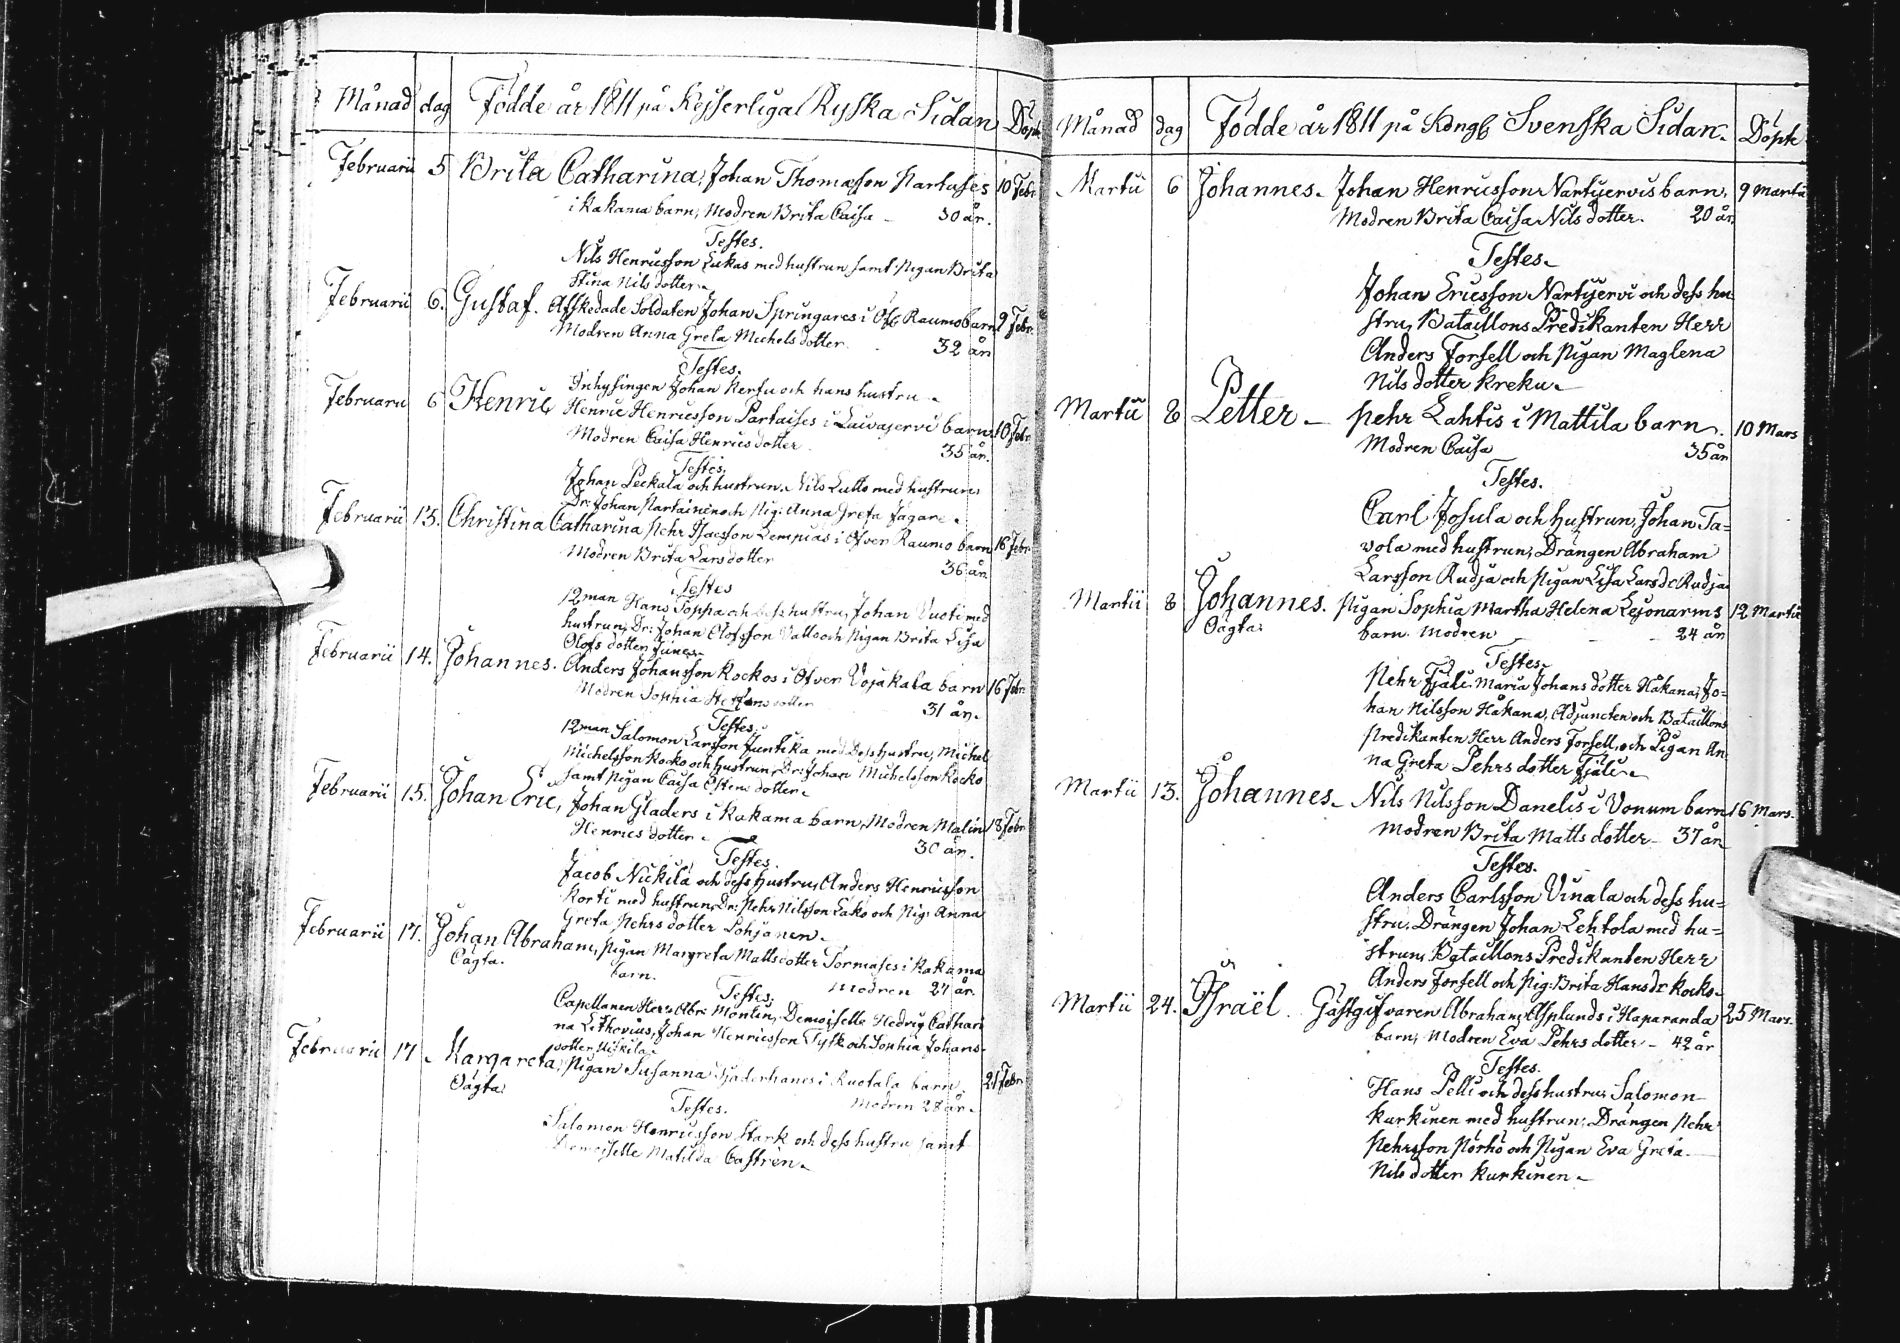 Månad dag Födde år 1811 på Kejserliga Ryska Sidan Döpte
Februarii 5 Brita Catharina, Johan Thomæson Martases 10 Febr.
i Kakama barn, Modren Brita Caisa 30 år.
Testes.
Nils Henricsson Lukas med hustrun samt Pigan Brita
Stina Nils dotter.
Februarii 6. Gustaf. Afskedade Soldaten Johan Springares i Öfv Raumo barn 9 Febr.
Modren Anna Greta Michels dotter. 32 år
Testes.
Inhysingen Johan Kertu och hans hustru.
Februarii 6 Henric Henric Henricsson Partaises i Laivajervi barn 10 Febr.
Modren Caisa Henrics dotter 35 år.
Testes.
Johan Peekala och hustrun, Nils Lutto med hustrun
Dr: Johan Martainin och Pig: Anna Greta Jagare.
Februarii 13. Christina Catharina Pehr Isacsson Lempias i Öfver Raumo barn 16 Febr.
Modren Brita Lars dotter 36 år
Testes
12man Hans Poppa och dess hustru, Johan Vuoti med
hustrun, Dr: Johan Olofsson Vallo och Pigan Brita Lisa
Olofs dotter Junes.
Februarii 14. Johannes. Anders Johansson Kockos i Öfver Vojakala barn 16 Febr.
Modren Sophia Steffans dotter 31 år.
Testes.
12man Salomon Larsson Juntika med Dess Hustru, Michel
Michelsson Kocko och hustrun, Dr: Johan Michelsson Kocko
samt Pigan Caisa Östens dotter.
Februarii 15. Johan Eric, Johan Gladers i Kakama barn, Modren Malin 18 Febr.
Henrics dotter. 30 år.
Testes.
Jacob Nickila och dess Hustru, Anders Henricsson
Korti med hustrun, Dr: Pehr Nilsson Lako och Pig: Anna
Greta Pehrs dotter Lohjanen.
Februarii 17. Johan Abraham, Pigan Margreta Matts dotter Tormases i Kakama
Oägta. barn. Modren 27 år.
Testes.
Capellanen Herr Abr: Montin, Demoiselle Hedvig Cathari
na Lithovius, Johan Henricsson Tysk och Sophia Johans-
dotter Niskila.
Februarii 17. Margareta, Pigan Susanna Sjäderhanes i Ruotala barn 21 Febr.
Oägta. Modren 28 år.
Testes.
Salomon Henricsson Stark och dess hustru samt
Demoiselle Matilda Castrèn.
Månad dag Födde år 1811 på Kongl Svenska Sidan. Döpte
Martii 6 Johannes. Johan Henricssons Nartijervis barn, 9 Martii
Modren Brita Caisa Nils dotter. 20 år
Testes.
Johan Ericsson Nartijervi och dess hu-
stru, Bataillons Predikanten Herr
Anders Forsell och Pigan Maglena
Nils dotter Kreku.
Martii 8 Petter. Pehr Lahtis i Mattila barn. 10 Mars
Modren Caisa 35 år
Testes.
Carl Josula och Hustrun, Johan Ta=
vola med hustrun, Drängen Abraham
Larsson Rudja och Pigan Lisa Lars dr Rudja
Martii 8 Johannes. Pigan Sophia Martha Helena Lejonarms 12 Martii
Oägta. barn. Modren 24 år
Testes.
Pehr Fjäli, Maria Johans dotter Håkana, Jo=
han Nilsson Håkana, Adjuncten och Bataillons
Predikanten Herr Anders Forsell, och Pigan An
na Greta Pehrs dotter Fjäli.
Martii 13. Johannes. Nils Nilsson Danelis i Vonum barn 16 Mars.
Modren Brita Matts dotter 37 år
Testes.
Anders Carlsson Vinala och dess hu=
stru, Drängen Johan Lehtola med hu=
strun, Bataillons Predikanten Herr
Anders Forsell och Pig: Brita Hans dr Kocko.
Martii 24. Israël. Gästgifvaren Abraham Asplunds i Haparanda 25 Mars.
barn, Modren Eva Pehrs dotter 42 år
Testes.
Hans Pelli och dess hustru, Salomon
Kurkinen med hustrun, Drängen Pehr
Pehrsson Pörhö och Pigan Eva Greta
Nils dotter Kurkinen.